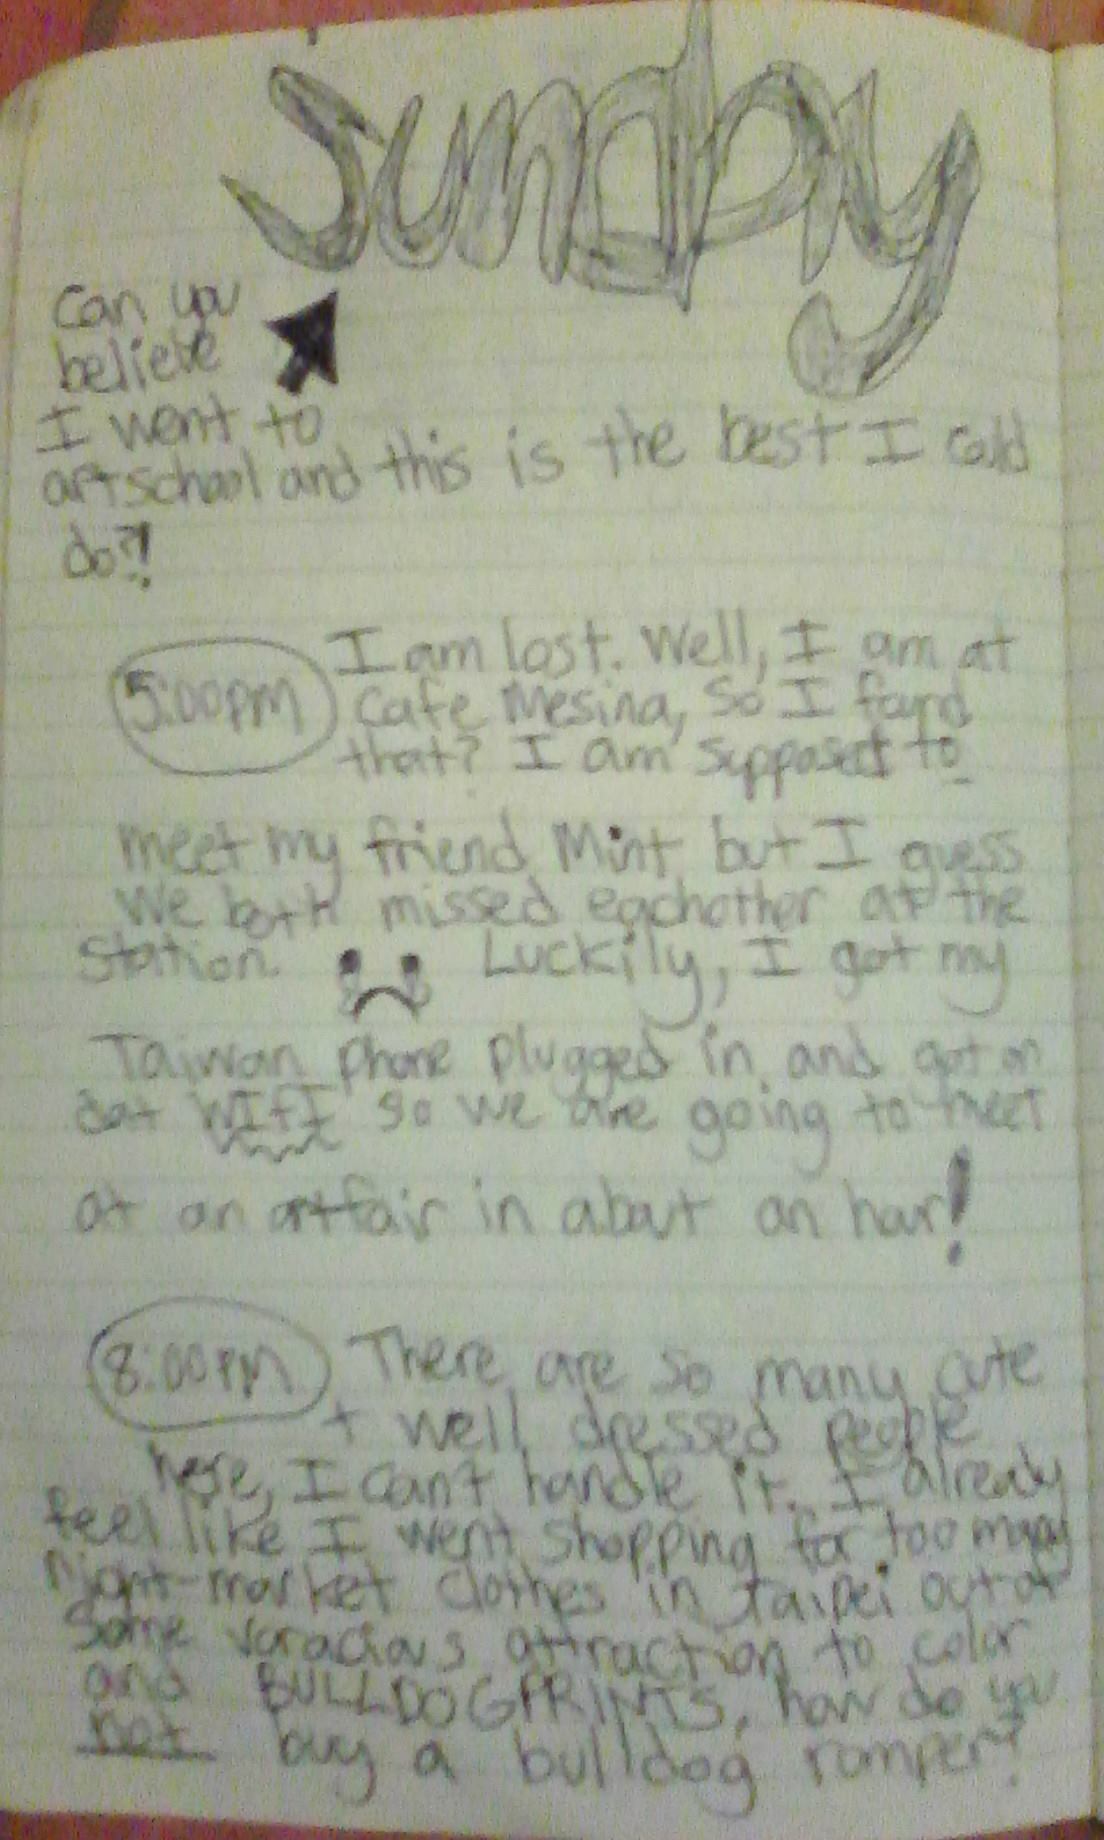 Sunday
Can you
believe
I went to
artschool and this is the best I could
do?!
5:00pm
I am lost. Well, I am at
Cafe Mesina, so I found
that? I am supposed to
meet my friend Mint but I guess
we both missed eachother at the
station. Luckily, I got my
Taiwan phone plugged in and got on
dat WIFI so we are going to meet
at an artfair in about an hour!
8:00pm
There are so many cute
+ well dressed people
here, I can't handle it. I already
feel like I went shopping for too many
night-market clothes in Taipei out of
some voracious attraction to color
and BULLDOGPRINTS, how do you
not buy a bulldog romper?